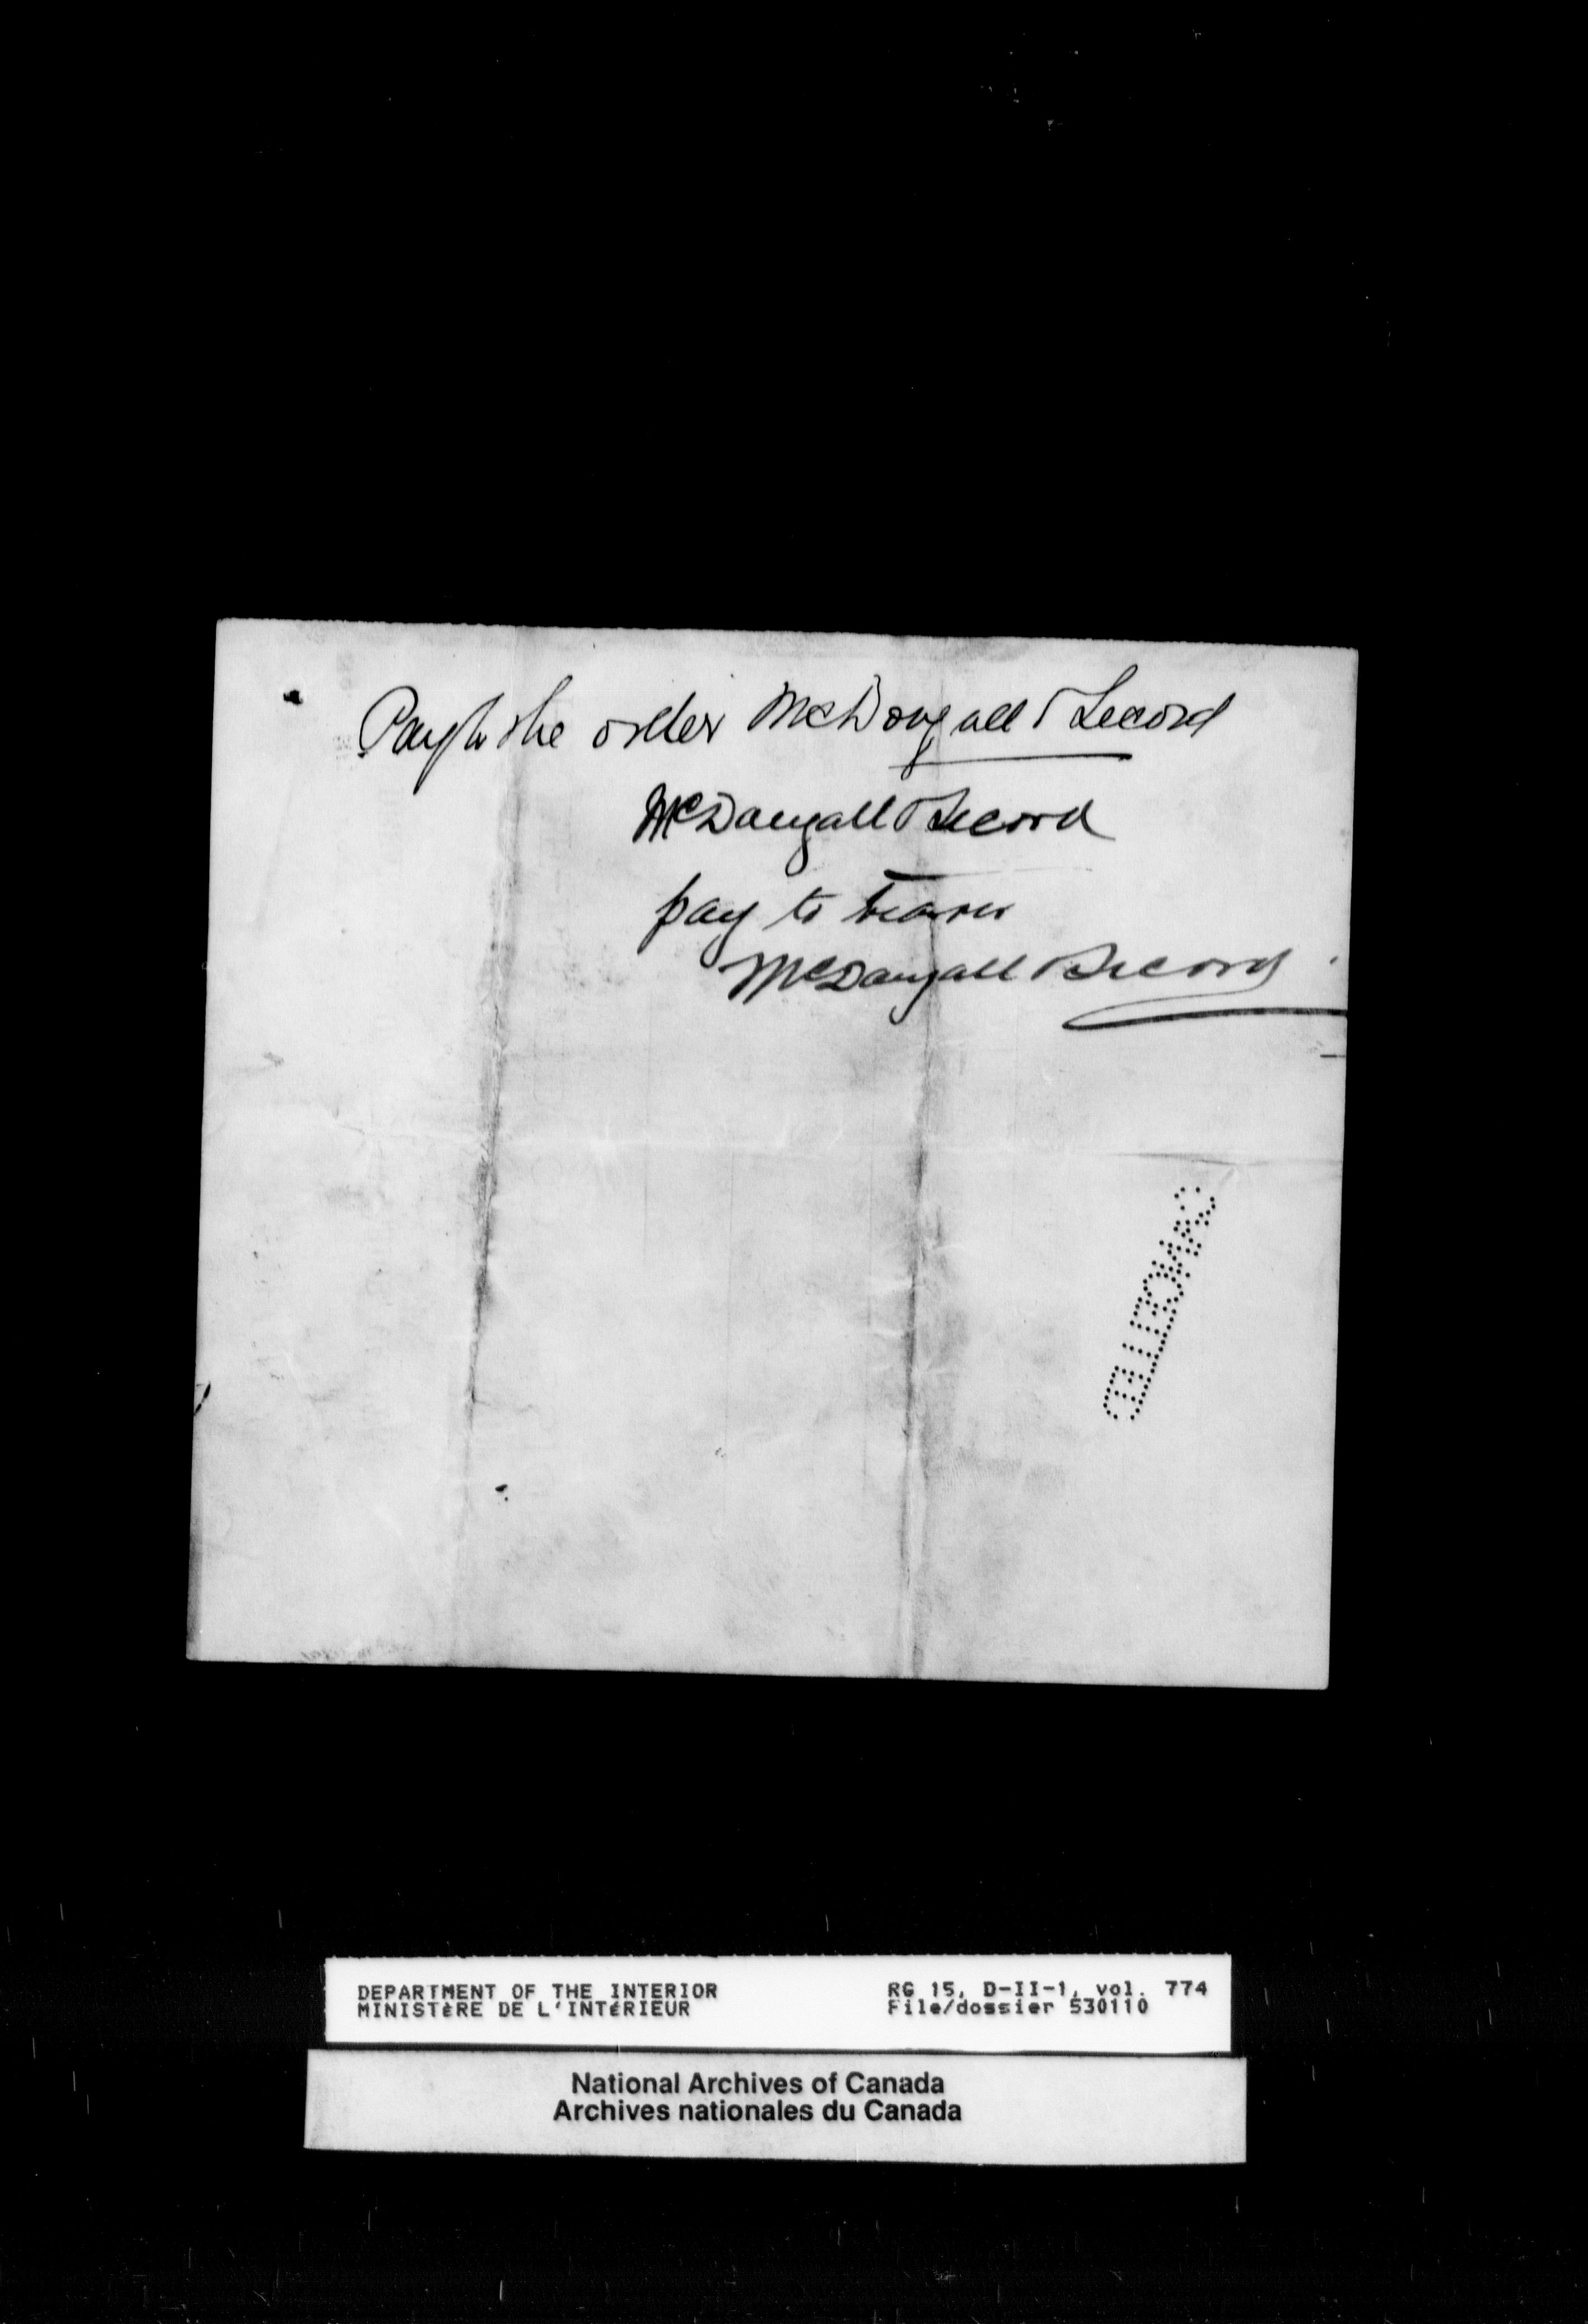 Pay to the order McDougall & Secord
McDougall & Secord
pay to bearer
McDougall & Secord
DEPARTMENT OF THE INTERIOR
MINISTèRE DE L'INTéRIEUR
RG 15, D-II-1, vol. 774
File/dossier 530110
National Archives of Canada
Archives nationales du Canada